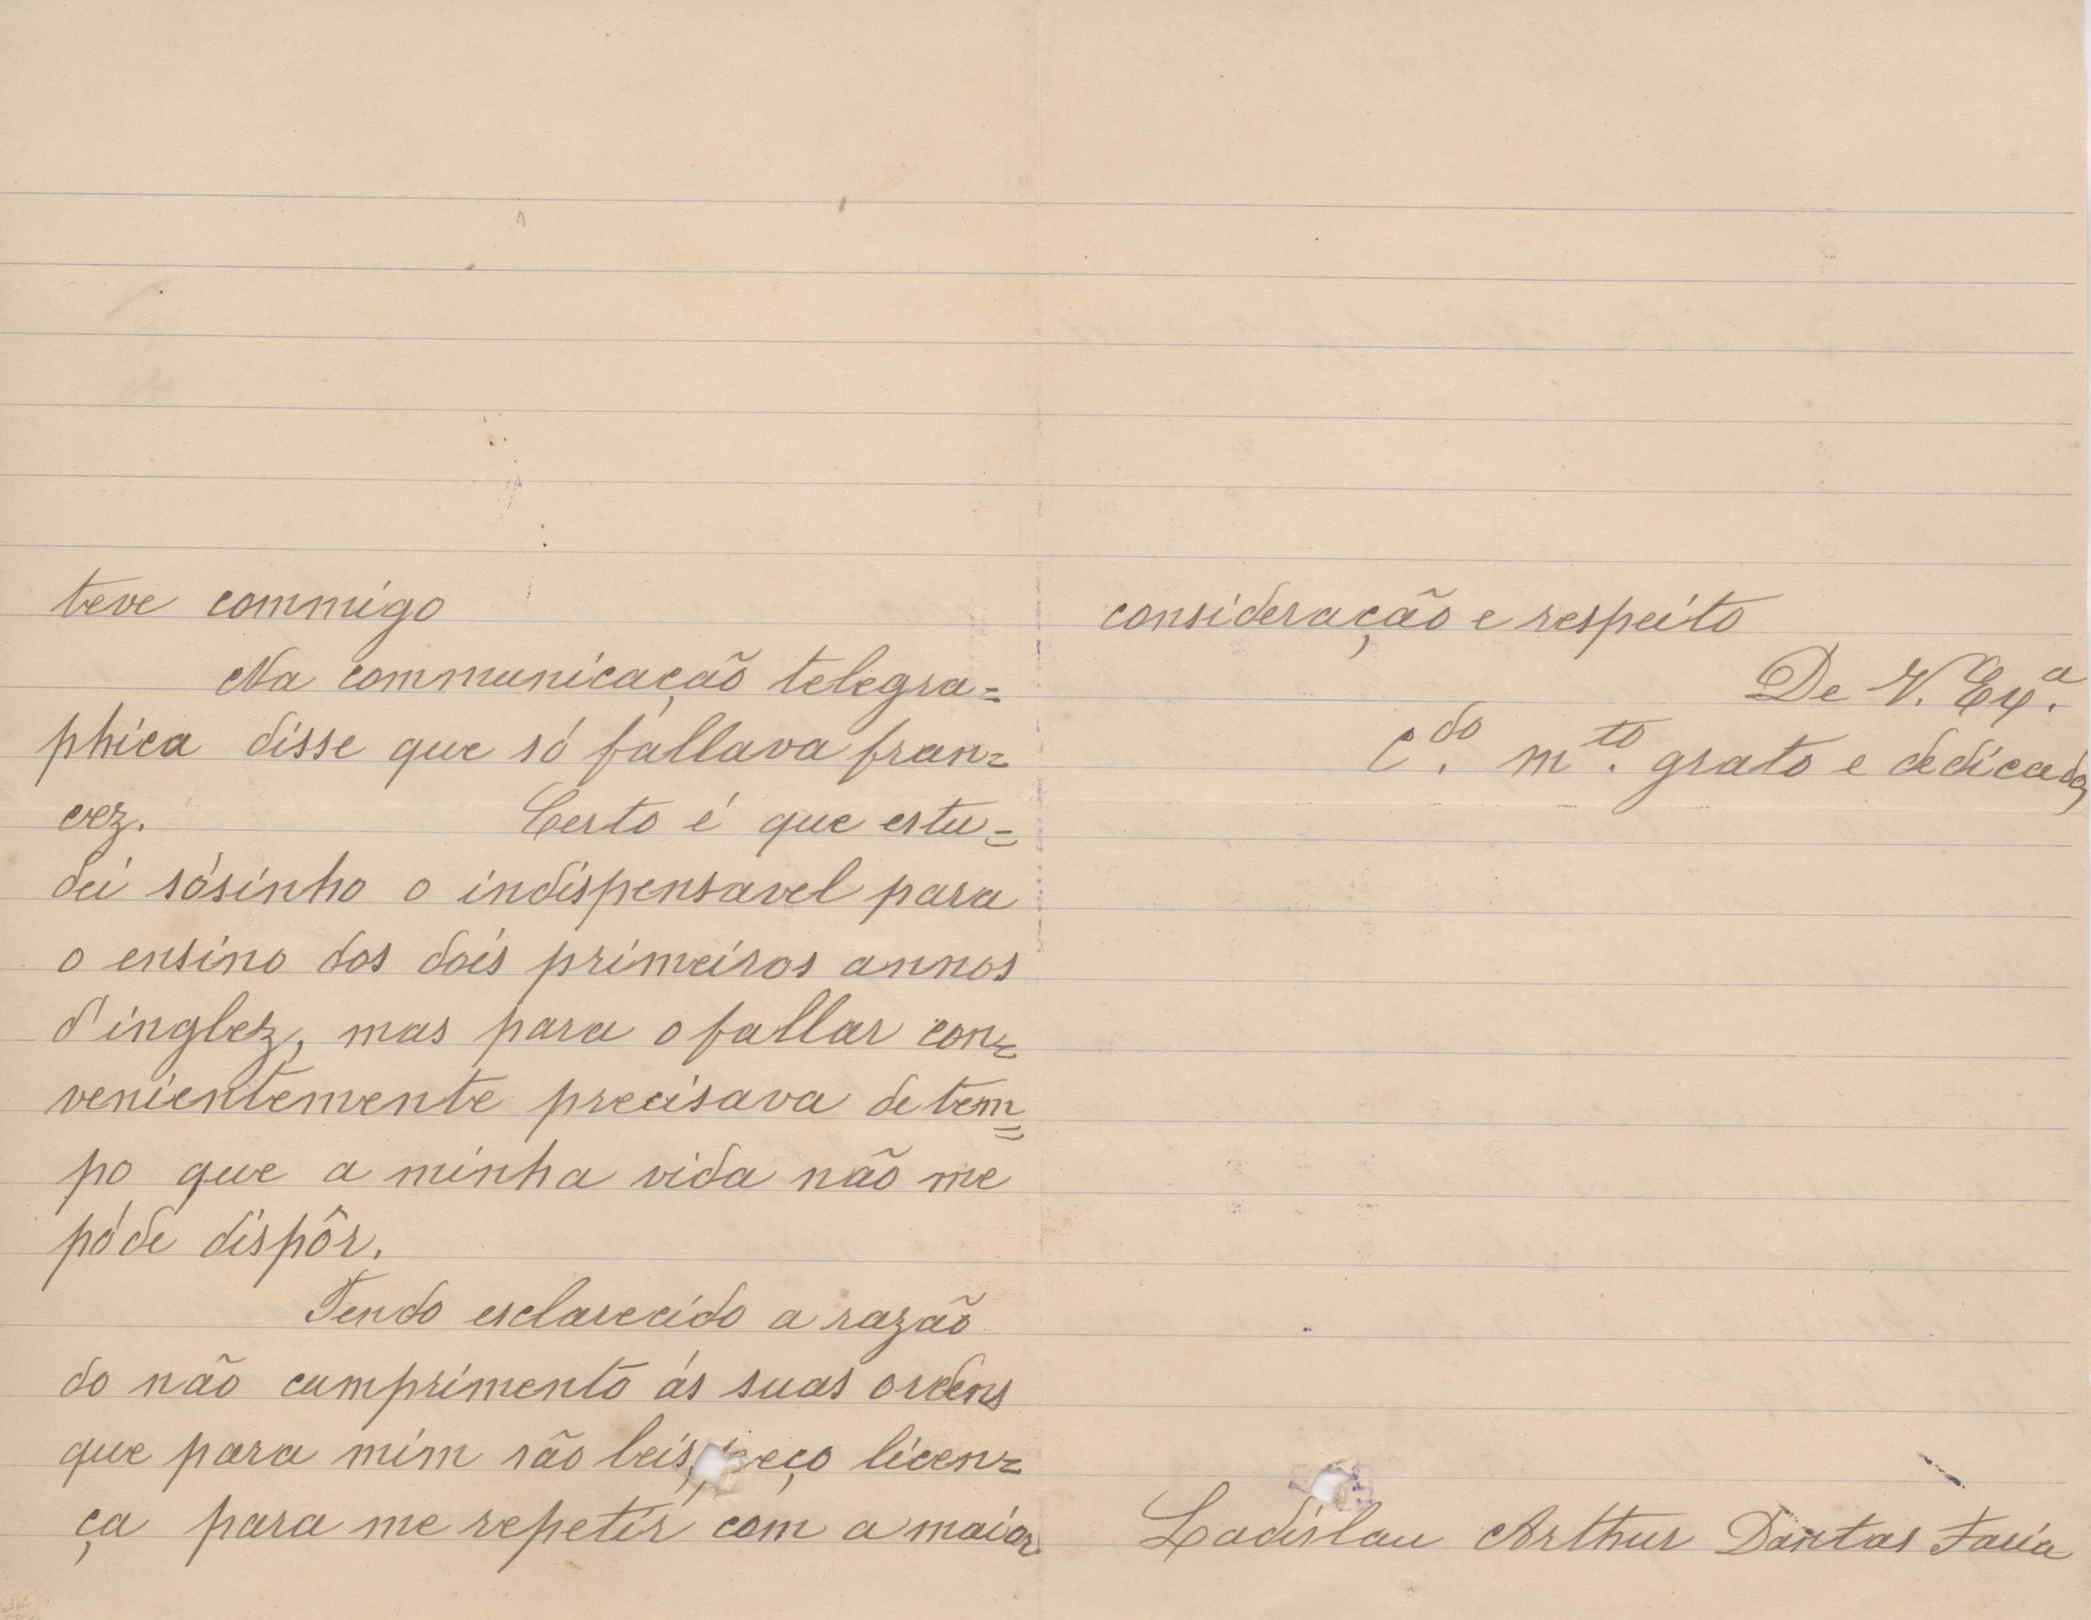 teve commigo
Na communicação telegra=
phica disse que só fallava fran=
cez. Certo é que estu=
dei sósinho o indispensavel para
o ensino dos dois primeiros annos
d'inglez, mas para o fallar con=
venientemente precisava de tem=
po que a minha vida não me
póde dispôr.
Tendo esclarecido a razão
do não cumprimento ás suas ordens
que para mim são leis, peço licen=
ça para me repetir com a maior
consideração e respeito
De V. Exª.
C.do m.to grato e dedicado
Ladislau Arthur Dantas Faria